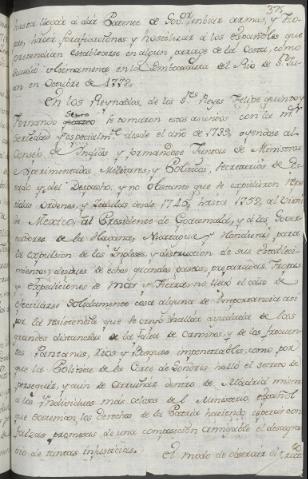 375
hasta llegar a dár Patente de Govor. embiar armas, y Tro-
pas, hacer fortificaciones y hostilizar a los Españoles que
pretendian establecerse en algun parage de la Costa, como
sucedió ultimamente en la Embocadura del Rio de Sn. Ju-
an en Octubre de 1779.
En los Reynados de los Sres. Reyes Felipe quinto y
Fernando Sexto se tomaron estos asuntos con las ma.
seriedad y especialmte. desde el año de 1739, oyendose al
Consejo de Indias y formandose Juntas de Ministros
Experimentados Militares, y Politicos, Secretarios de Es-
tado y del Despacho, y no obstante que se expidieron rei-
teradas Ordenes, y Cedulas desde 1745, hasta 1759, al Virrei
de Mexico, al Presidente de Goatemala, y a los Gover-
nadores de la Havana, Nicaragua, y Honduras para
la expulsion de los Ingleses, y destruccion de sus estableci-
mientos; y despues de echos grandes gastos, preparadas Tropas
y Expediciones de Mar y Tierra, no llegó el caso de
executarse solidamente cosa alguna de importancia asi
por la resistencia que se creyó hallar ayudada de las
grandes distancias de la falta de caminos, y de los frequentes
Pantanos, Rios y Bosques impenetrables, como por
que la Politica de la Corte de Londres halló el secreto de
perseguir, y aún de arruinar dentro de Madrid mismo
a los Individuos mas celosos del Ministerio español
que sostenian los derechos de la Patria haciendo esperar con
falsas promesas de una composicion amigable el desagra-
vio de tantas injusticias.
El modo de observar el